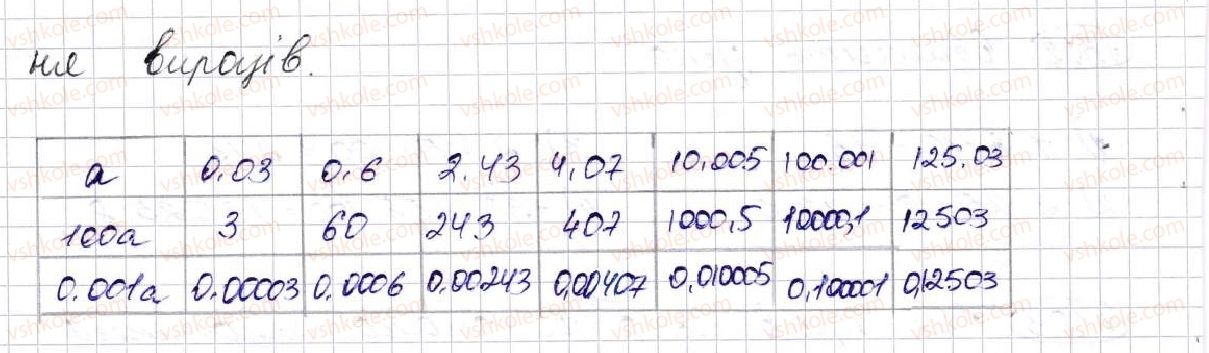 ня виразів.
a 0,03 0,6 2.43 4,07 10,005 100.001 125.03
100a 3 60 243 407 1000,5 10000,1 12503
0.001a 0.00003 0.0006 0,00243 0,00407 0,010005 0,100001 0,12503